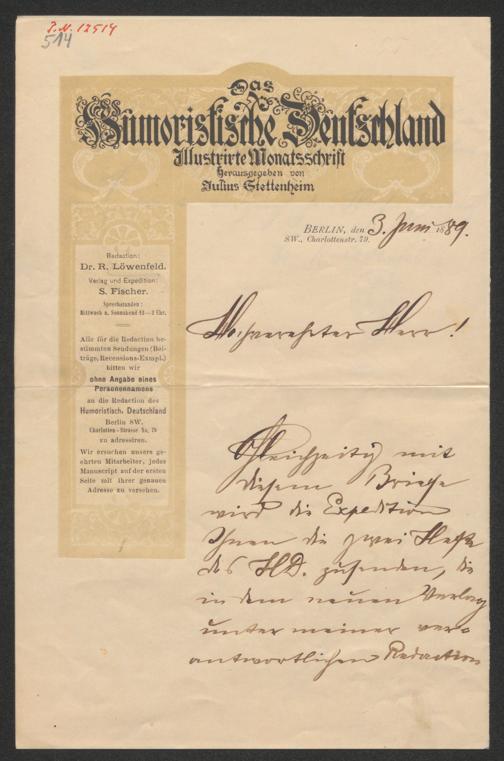 I.N. 17514
514
Das
Humoristische Deutschland
Illustrirte Monatsschrift
Herausgegeben von
Julius Stettenheim
BERLIN, den 3. Juni 1889.
SW., Charlottenstr. 79.
Redaction:
Dr. R. Löwenfeld.
Verlag und Expedition:
S. Fischer.
Sprechstunden:
Mittwoch u. Sonnabend 12—2 Uhr.
Alle für die Redaction be-
stimmten Sendungen (Bei-
träge, Recensions-Exmpl.)
bitten wir
ohne Angabe eines
Personennamens
an die Redaction des
Humoristisch. Deutschland
Berlin SW.
Charlotten-Strasse No. 79
zu adressiren.
Wir ersuchen unsere ge-
ehrten Mitarbeiter, jedes
Manuscript auf der ersten
Seite mit ihrer genauen
Adresse zu versehen.
Hochverehrter Herr!
Gleichzeitig mit
diesem Briefe
wird die Expedition
Ihnen die zwei Hefte
des HD. zusenden, die
in dem neuen Verlag
unter meiner ver-
antwortlichen Redaction